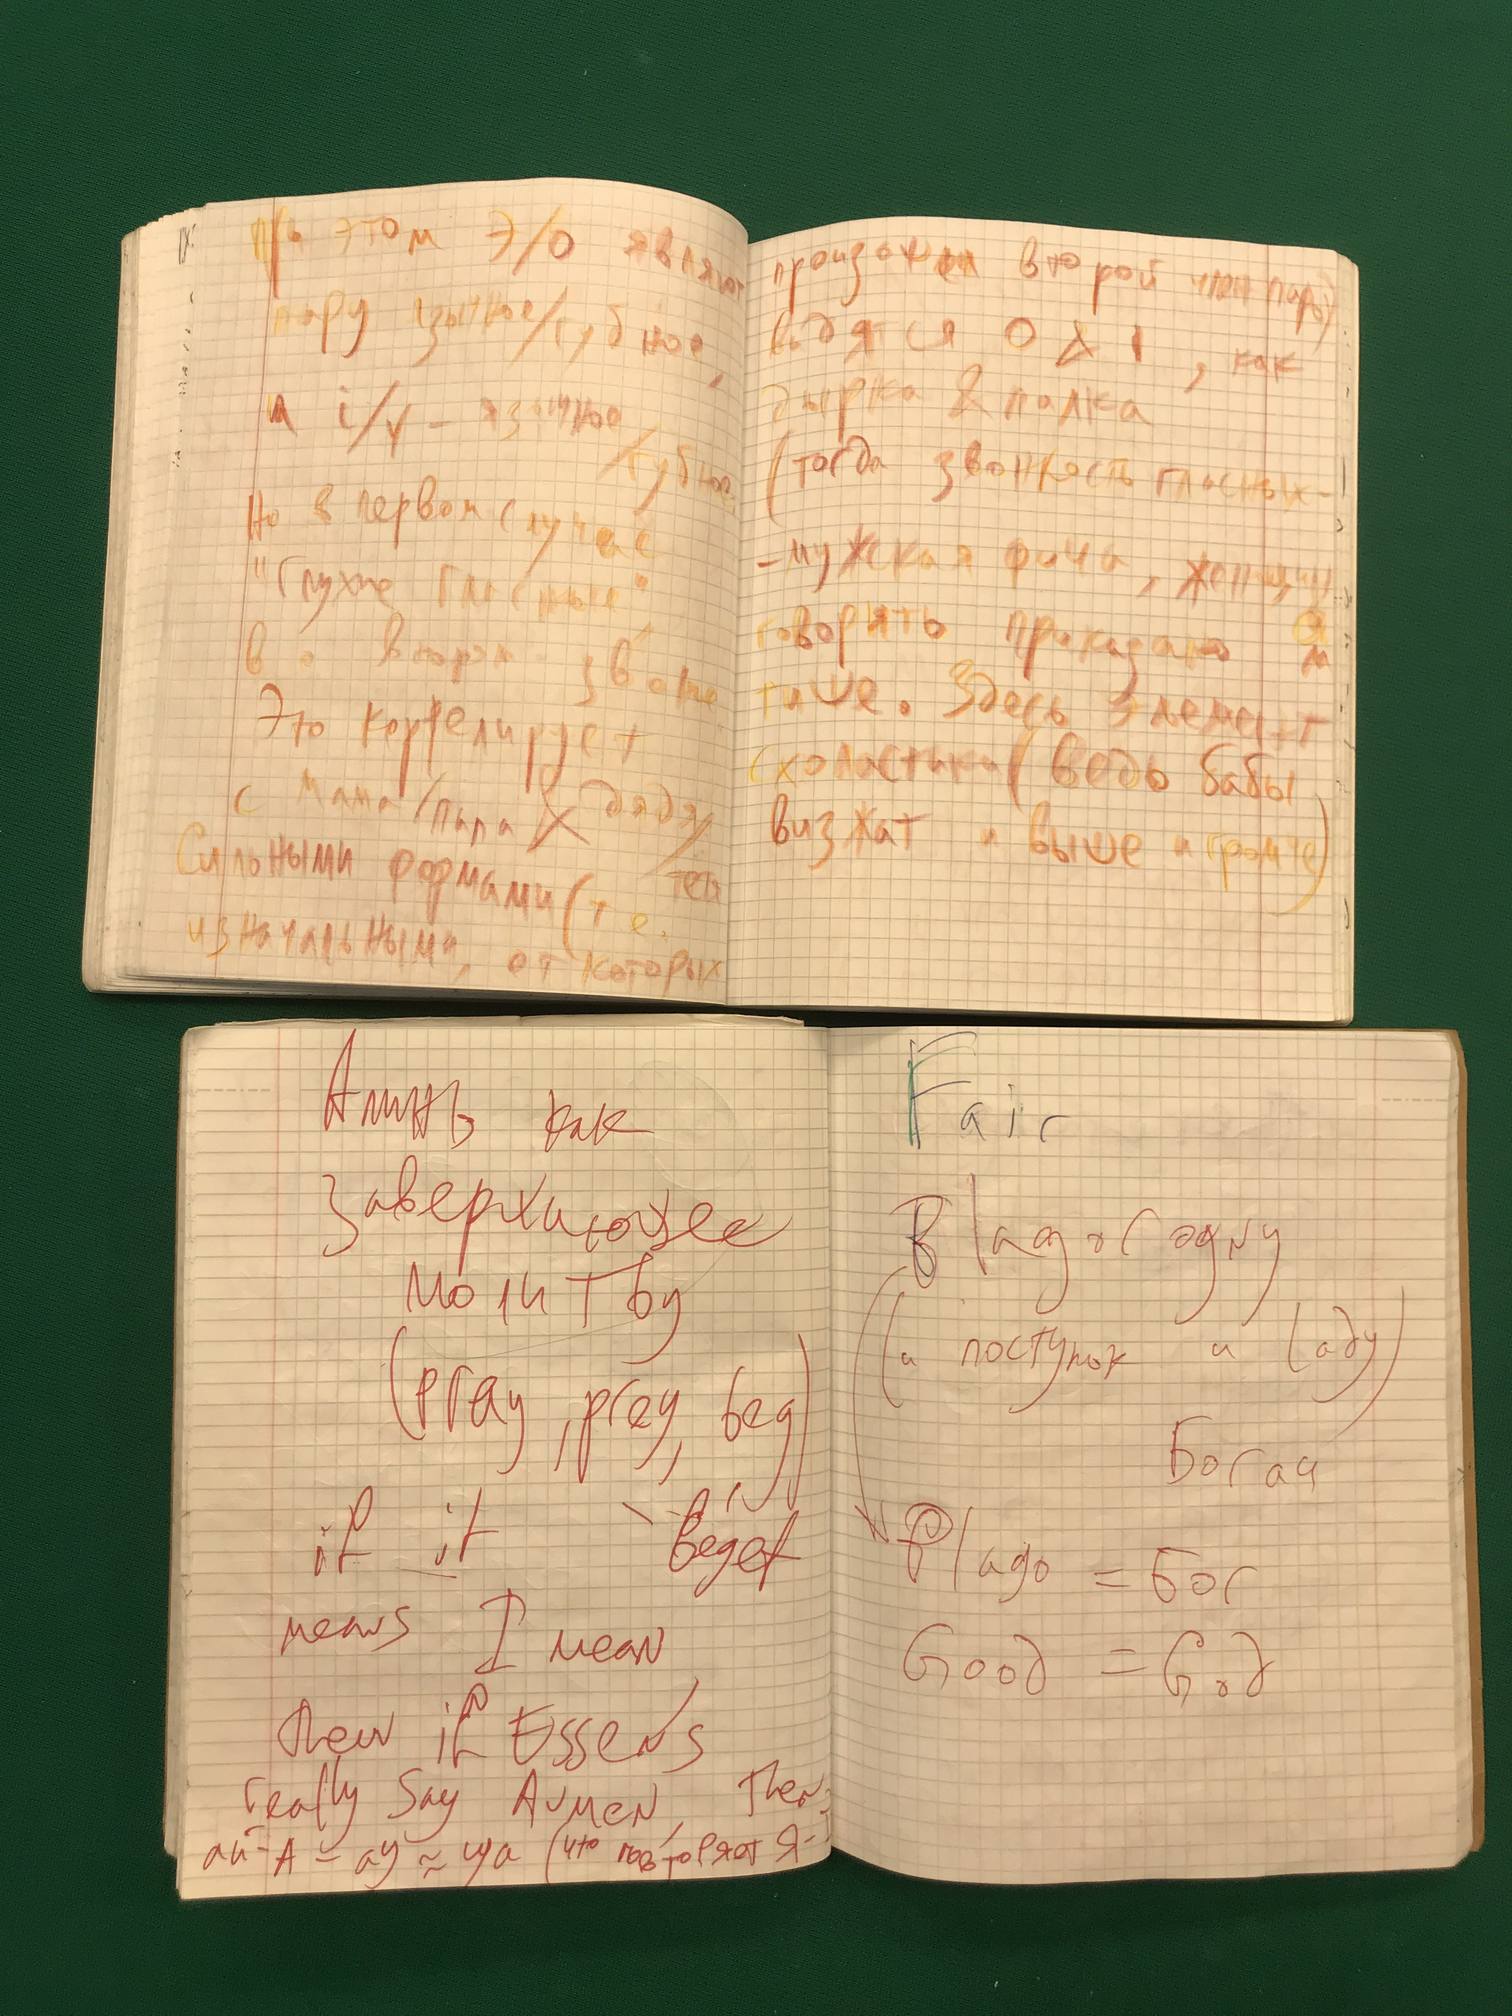 При этом Э/О являют
пару язычное/губное,
и i/у - язычное
/губное
Но в первом случае
"Глухие гласные"
во втором звонкие
Это коррелирует
с мама/папа & дядя/
тётя
Сильными формами (т.е.
изначальными, от которых
второй член пары)
водятся 0 & 1, как
дырка & палка
(тогда звонкость гласных-
-мужская фича, женщины
говорять приказано им
тише. Здесь элемент
схоластики (ведь бабы
визжат и выше и громче)
Аминь как
завершающее
молитву
(pray, prey, beg)
if it beget
means I mean
then if Essens
really say Aumen, then
au-A = ay ≈ уа (что повторяют Я-
Fair
Blagorodny
(и поступок и lady)
Богач
Plago = Бог
Good = God